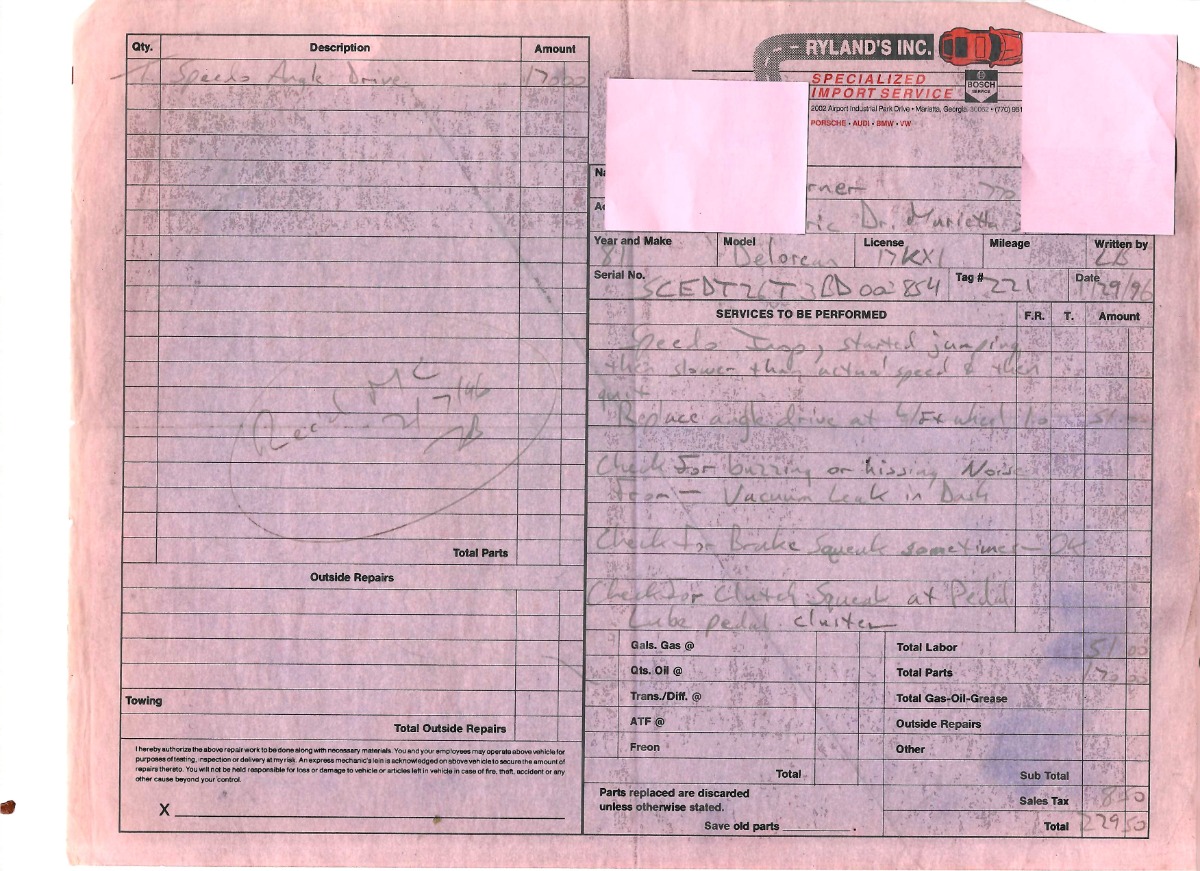 Qty. Description Amount
1 Speedo Angle Drive 170 00
Total Parts
Outside Repairs
Towing
Total Outside Repairs
I hereby authorize the above repair work to be done along with necessary materials. You and your employees may operate above vehicle for
purposes of testing, inspection or delivery at my risk. An express mechanic's lein is acknowledged on above vehicle to secure the amount of
repairs thereto. You will not be held responsible for loss or damage to vehicle or articles left in vehicle in case of fire, theft, accident or any
other cause beyond your control.
X
Rec'd MC
2/7/96
RYLAND'S INC.
SPECIALIZED
IMPORT SERVICE
BOSCH
SERVICE
2002 Airport Industrial Park Drive • Marietta, Georgia 30062 • (770) 951
PORSCHE • AUDI • BMW • VW
Na
rner 770
A
ric Dr. Marietta
Year and Make Model License Mileage Written by
81 Delorean 17KX1 LB
Serial No. SCEDT26T3BD002854 Tag # 221 Date 1/29/96
SERVICES TO BE PERFORMED F.R. T. Amount
Speedo Inop, started jumping
then slower than actual speed & then
quit
Replace angle drive at L/Ft wheel 1.0 51 00
Check For buzzing or hissing Noise
From — Vacuum Leak in Dash
Check For Brake Squeak sometimes — OK
Check For Clutch Squeak at Pedal
Lube pedal cluster
Gals. Gas @ Total Labor 51 00
Qts. Oil @ Total Parts 170 00
Trans./Diff. @ Total Gas-Oil-Grease
ATF @ Outside Repairs
Freon Other
Total Sub Total
Parts replaced are discarded
unless otherwise stated. Sales Tax 8 50
Save old parts Total 229 50